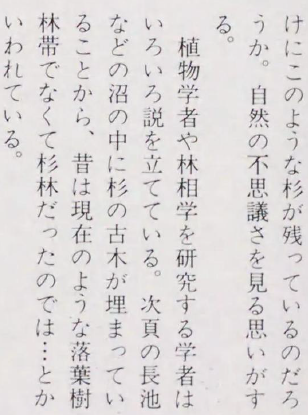 けにこのような杉が残っているのだろ
うか。自然の不思議さを見る思いがす
る。
植物学者や林相学を研究する学者は
いろいろ説を立てている。次頁の長池
などの沼の中に杉の古木が埋まってい
ることから、昔は現在のような落葉樹
林帯でなくて杉林だったのでは…とか
いわれている。